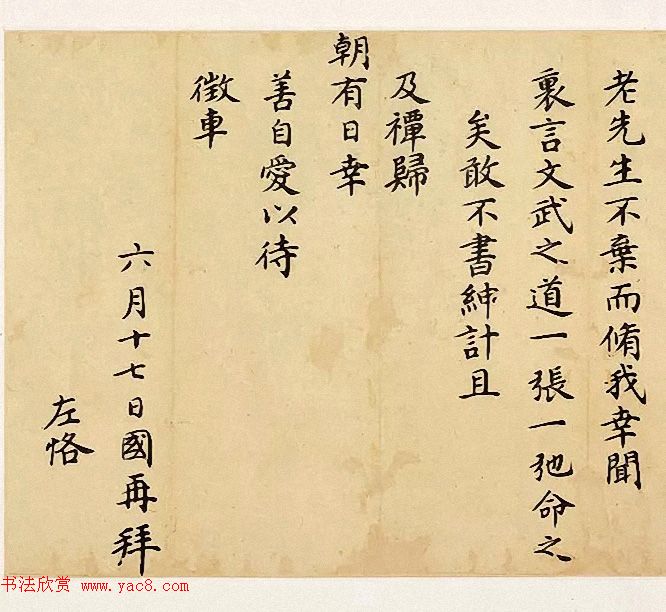 老先生不棄而脩我幸聞
裏言文武之道一張一弛命之
矣敢不書紳計且
及禫歸
朝有日幸
善自愛以待
徵車
六月十七日國再拜
左恪
书法欣赏 www.yac8.com